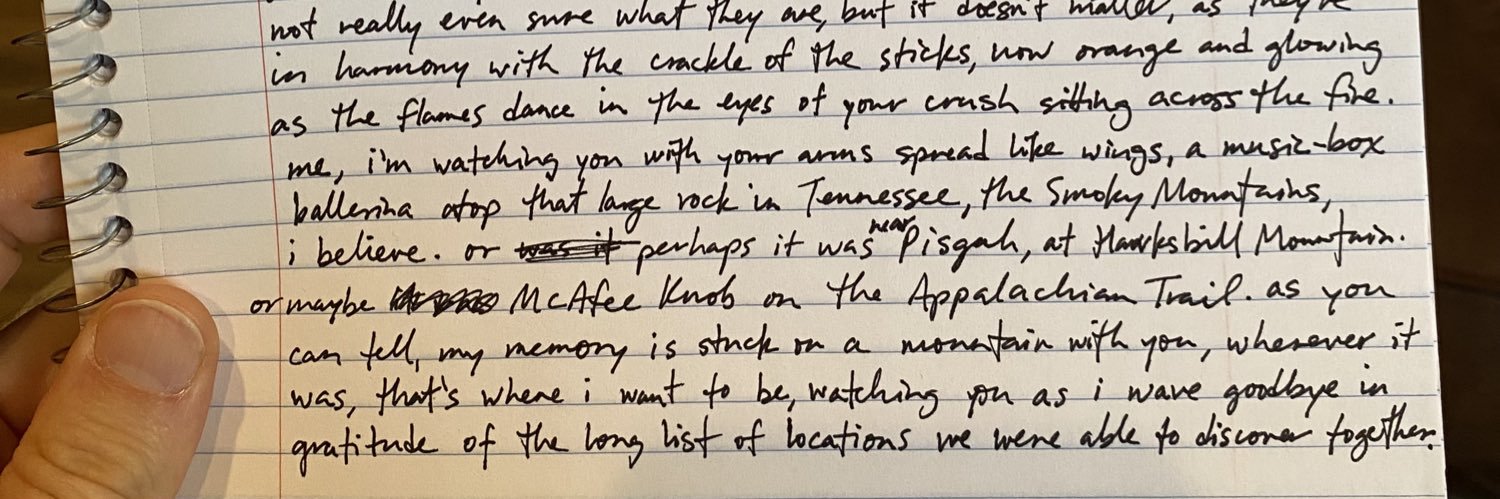 not really even sure what they are, but it doesn't matter, as they're
in harmony with the crackle of the sticks, now orange and glowing
as the flames dance in the eyes of your crush sitting across the fire.
me, i'm watching you with your arms spread like wings, a music-box
ballerina atop that large rock in Tennessee, the Smoky Mountains,
i believe. or was it perhaps it was near Pisgah, at Hawksbill Mountain.
or maybe McAfee Knob on the Appalachian Trail. as you
can tell, my memory is stuck on a mountain with you, wherever it
was, that's where i want to be, watching you as i wave goodbye in
gratitude of the long list of locations we were able to discover together.